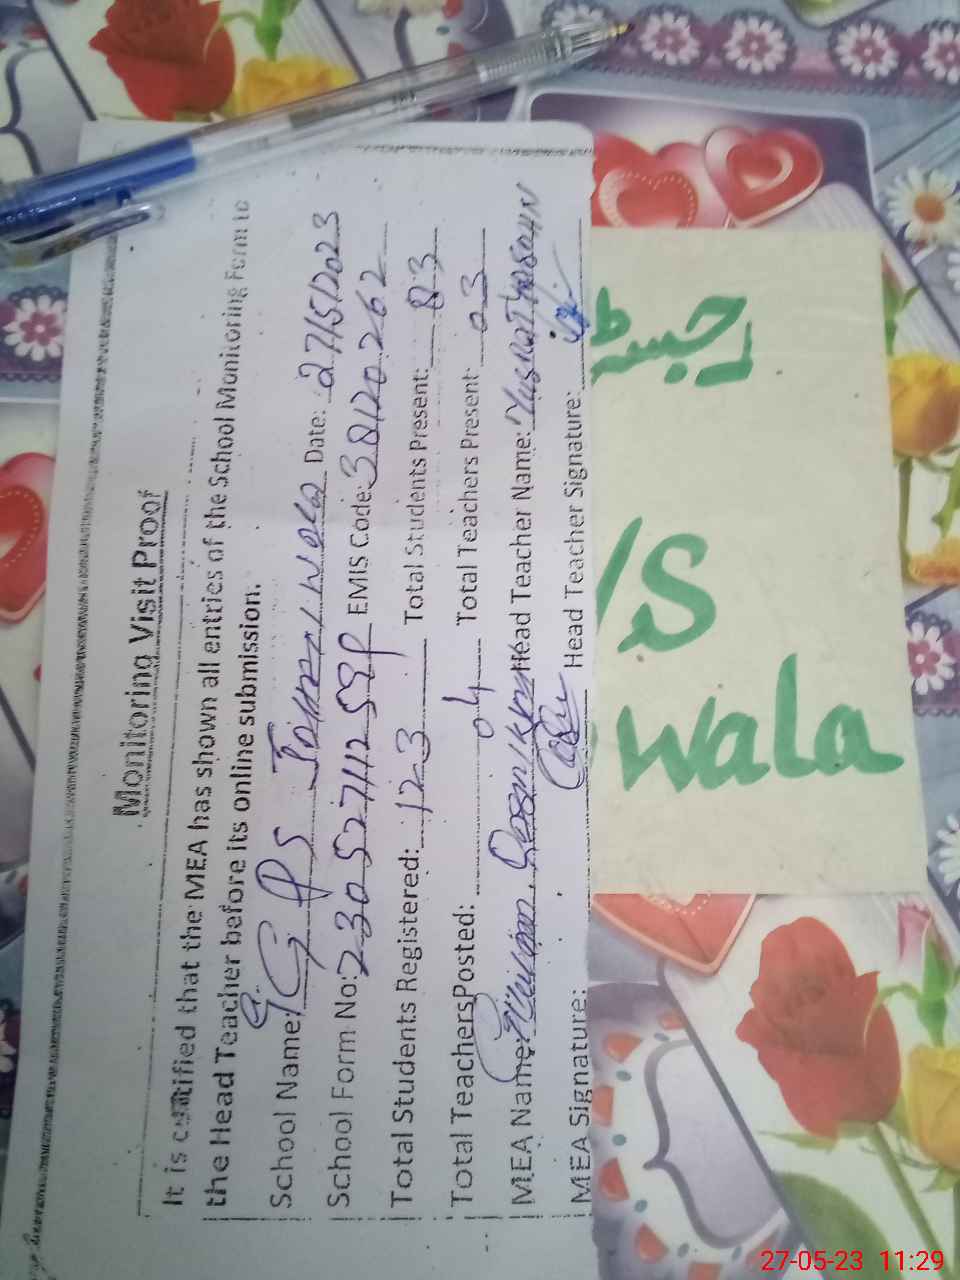 Monitoring Visit Proof
It is certified that the MEA has shown all entries of the School Monitoring Form to
the Head Teacher before its online submission.
School Name: GGPS wala Date: 27/5/2023
School Form No: EMIS Code: 38120262
Total Students Registered: 123 Total Students Present: 83
Total Teachers Posted: 04 Total Teachers Present: 03
MEA Name: Head Teacher Name:
MEA Signature: Head Teacher Signature:
/S
wala
27-05-23 11:29